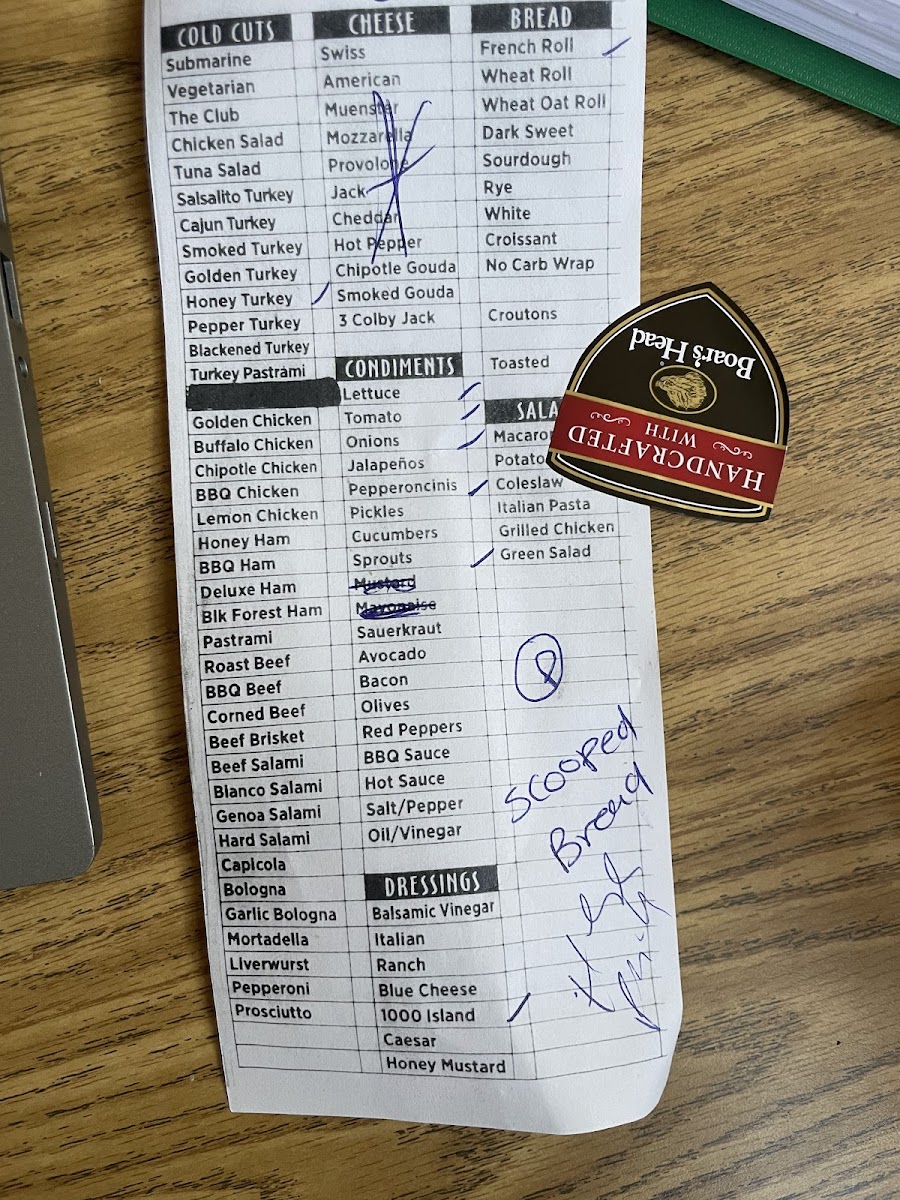 COLD CUTS
Submarine
Vegetarian
The Club
Chicken Salad
Tuna Salad
Salsalito Turkey
Cajun Turkey
Smoked Turkey
Golden Turkey
Honey Turkey
Pepper Turkey
Blackened Turkey
Turkey Pastrami
Golden Chicken
Buffalo Chicken
Chipotle Chicken
BBQ Chicken
Lemon Chicken
Honey Ham
BBQ Ham
Deluxe Ham
Blk Forest Ham
Pastrami
Roast Beef
BBQ Beef
Corned Beef
Beef Brisket
Beef Salami
Blanco Salami
Genoa Salami
Hard Salami
Capicola
Bologna
Garlic Bologna
Mortadella
Liverwurst
Pepperoni
Prosciutto
CHEESE
Swiss
American
Muenster
Mozzarella
Provolone
Jack
Cheddar
Hot Pepper
Chipotle Gouda
Smoked Gouda
3 Colby Jack
CONDIMENTS
Lettuce
Tomato
Onions
Jalapeños
Pepperoncinis
Pickles
Cucumbers
Sprouts
Mustard
Mayonaise
Sauerkraut
Avocado
Bacon
Olives
Red Peppers
BBQ Sauce
Hot Sauce
Salt/Pepper
Oil/Vinegar
DRESSINGS
Balsamic Vinegar
Italian
Ranch
Blue Cheese
1000 Island
Caesar
Honey Mustard
BREAD
French Roll
Wheat Roll
Wheat Oat Roll
Dark Sweet
Sourdough
Rye
White
Croissant
No Carb Wrap
Croutons
Toasted
SALA
Macaron
Potato
Coleslaw
Italian Pasta
Grilled Chicken
Green Salad
Scooped
Bread
HANDCRAFTED
WITH
Boar's Head